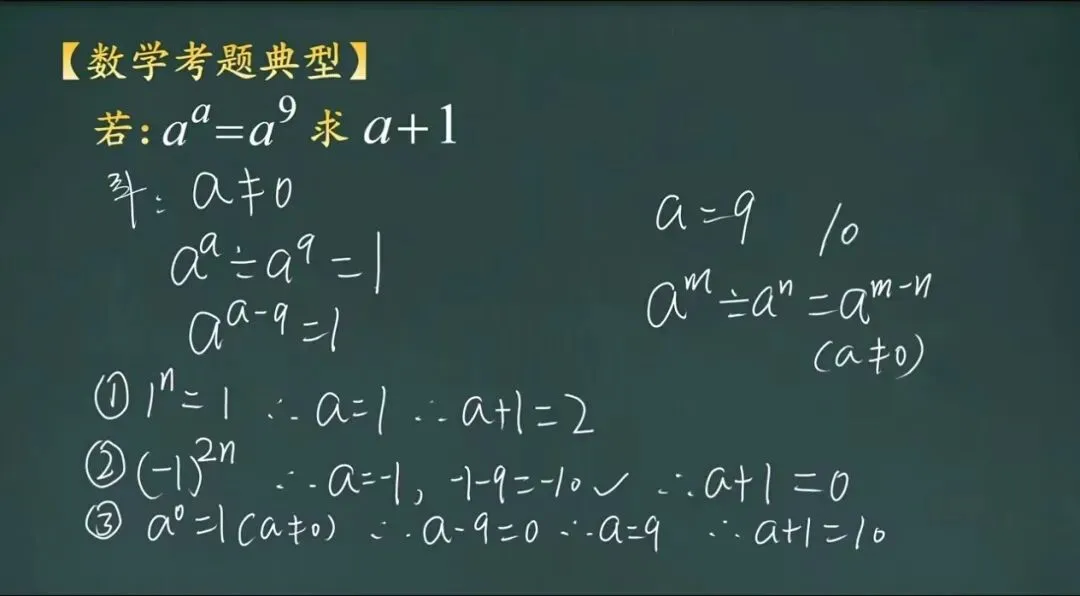 【数学考题典型】
若:aᵃ=a⁹ 求 a+1
a≠0
a=9 10
aᵃ÷a⁹=1
aᵐ÷aⁿ=aᵐ⁻ⁿ
aᵃ⁻⁹=1
(a≠0)
① 1ⁿ=1 ∴a=1 ∴a+1=2
② (-1)²ⁿ ∴a=-1, -1-9=-10✓ ∴a+1=0
③ a⁰=1(a≠0) ∴a-9=0 ∴a=9 ∴a+1=10